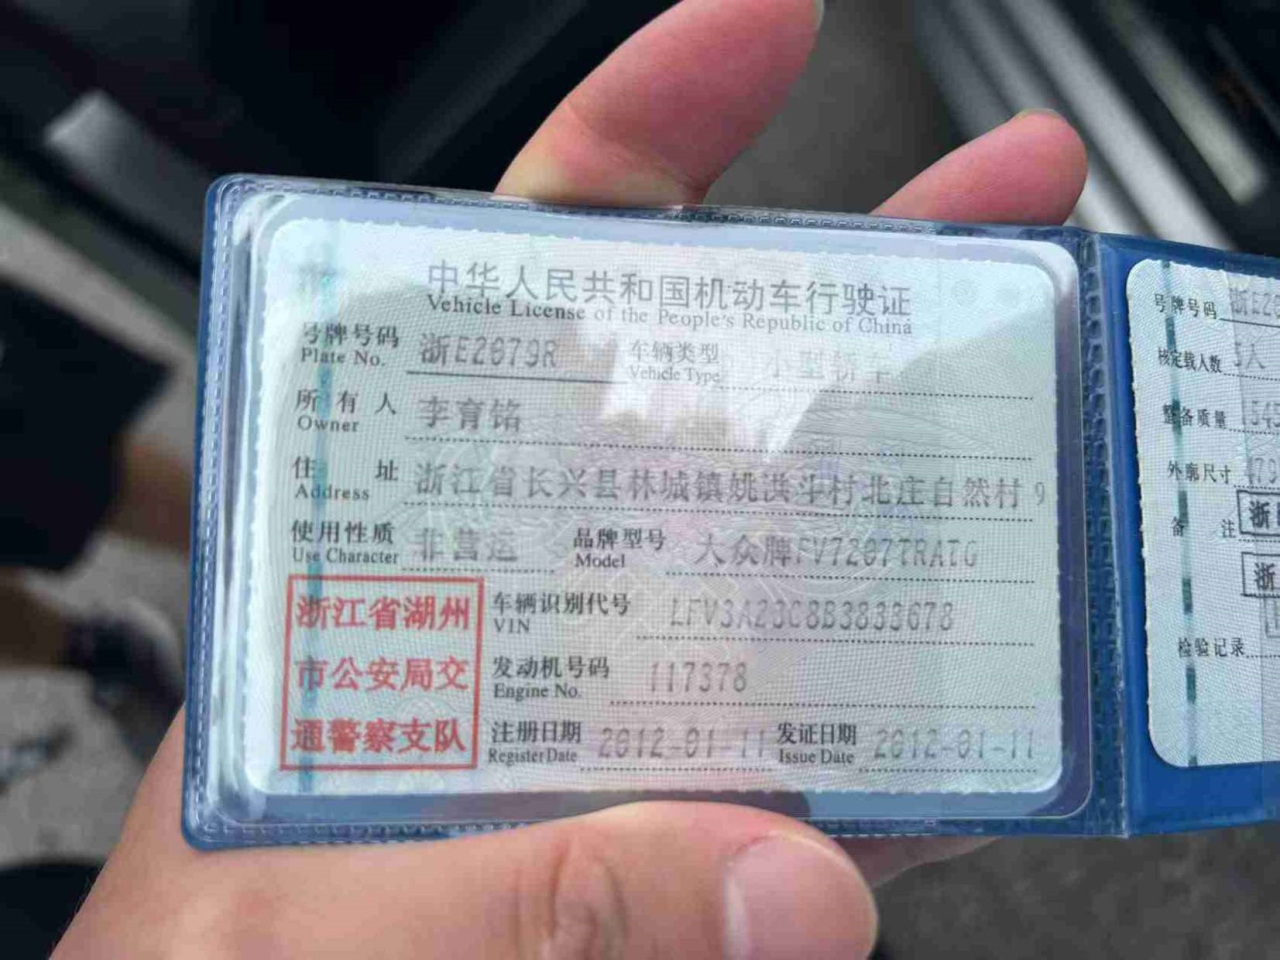 中华人民共和国机动车行驶证
Vehicle License of the People's Republic of China
号牌号码 浙E2679R 车辆类型 小型轿车
Plate No. Vehicle Type
所有人 李育铭
Owner
住址 浙江省长兴县林城镇姚洪斗村北庄自然村9
Address
使用性质 非营运 品牌型号 大众牌FV7207TRATG
Use Character Model
浙江省湖州
市公安局交
通警察支队
车辆识别代号 LFV3A23C8B3833678
VIN
发动机号码 117378
Engine No.
注册日期 2012-01-11 发证日期 2012-01-11
Register Date Issue Date
号牌号码 浙E2
核定载人数 5人
整备质量
外廓尺寸
备注 浙
浙
检验记录